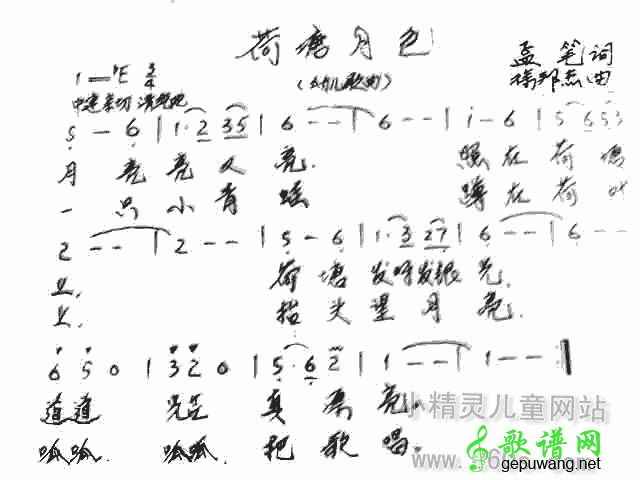 荷塘月色
1=♭E 3/4
(幼儿歌曲)
孟笔词
杨邦杰曲
中速亲切 清楚地
5 - 6 | 1·2 35 | 6 - - | 6 - - | i - 6 | 5 653
月 亮 亮 又 亮. 照 在 荷 塘
一 只 小 青 蛙 蹲 在 荷 叶
2 - - | 2 - - | 5 - 6 | 1·3 27 | 6 - - | 6 - -
上, 荷 塘 发 呀 发 银 光.
上. 抬 头 望 月 亮.
6 5 0 | 3 2 0 | 5·6 2 | 1 - - | 1 - - :‖
道道 光芒 真 漂 亮.
呱呱, 呱呱. 把 歌 唱.
小精灵儿童网站
歌谱网
gepuwang.net